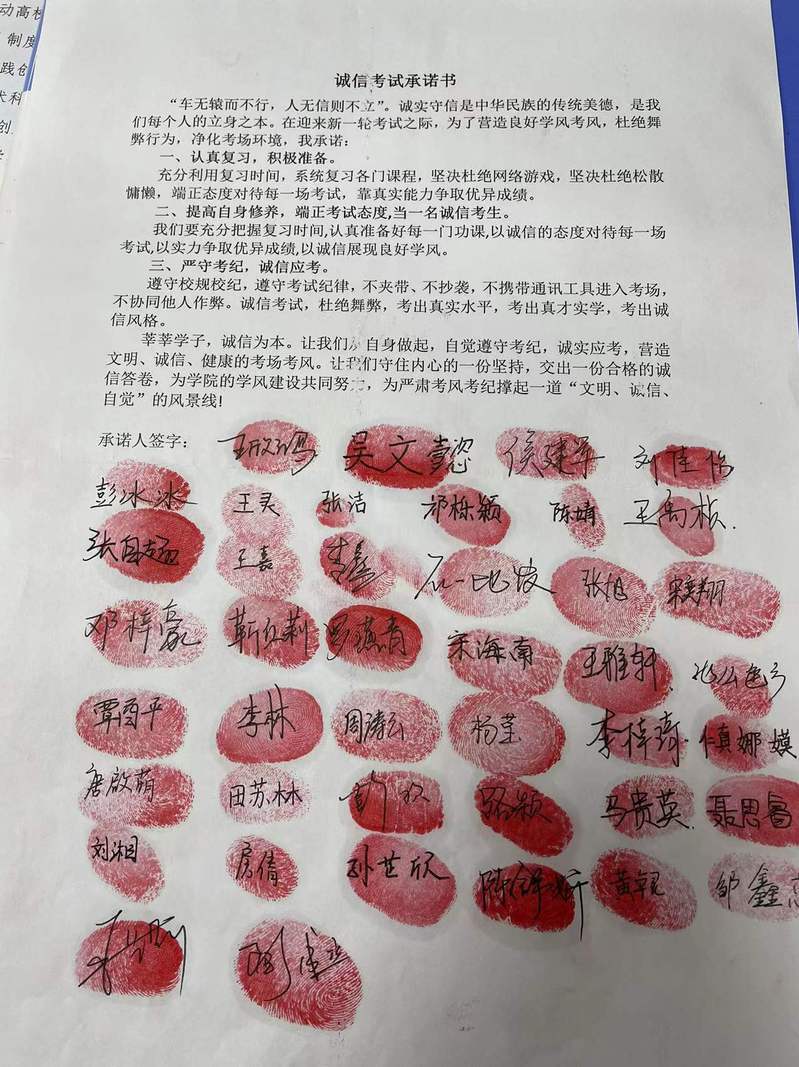 动高校
制度
践创
术科
创
诚信考试承诺书
“车无辕而不行，人无信则不立”。诚实守信是中华民族的传统美德，是我
们每个人的立身之本。在迎来新一轮考试之际，为了营造良好学风考风，杜绝舞
弊行为，净化考场环境，我承诺：
一、认真复习，积极准备。
充分利用复习时间，系统复习各门课程，坚决杜绝网络游戏，坚决杜绝松散
慵懒，端正态度对待每一场考试，靠真实能力争取优异成绩。
二、提高自身修养，端正考试态度,当一名诚信考生。
我们要充分把握复习时间,认真准备好每一门功课,以诚信的态度对待每一场
考试,以实力争取优异成绩,以诚信展现良好学风。
三、严守考纪，诚信应考。
遵守校规校纪，遵守考试纪律，不夹带、不抄袭，不携带通讯工具进入考场，
不协同他人作弊。诚信考试，杜绝舞弊，考出真实水平，考出真才实学，考出诚
信风格。
莘莘学子，诚信为本。让我们从自身做起，自觉遵守考纪，诚实应考，营造
文明、诚信、健康的考场考风。让我们守住内心的一份坚持，交出一份合格的诚
信答卷，为学院的学风建设共同努力，为严肃考风考纪撑起一道“文明、诚信、
自觉”的风景线!
承诺人签字： 吴文懿 侯建军 刘佳怡
彭冰冰 王灵 张洁 祁栎颖 陈婧 王禹桢
王嘉 张旭 宋翔
邓梓豪 靳红莉 罗琪青 宋海南 王雅轩
覃雪平 李林 周涛云 杨莹 李梓琦 真娜嫫
唐啟萌 田苏林 路颖 马贵英 聂思睿
刘湘 房倩 孙芷欣 黄锟 邹鑫